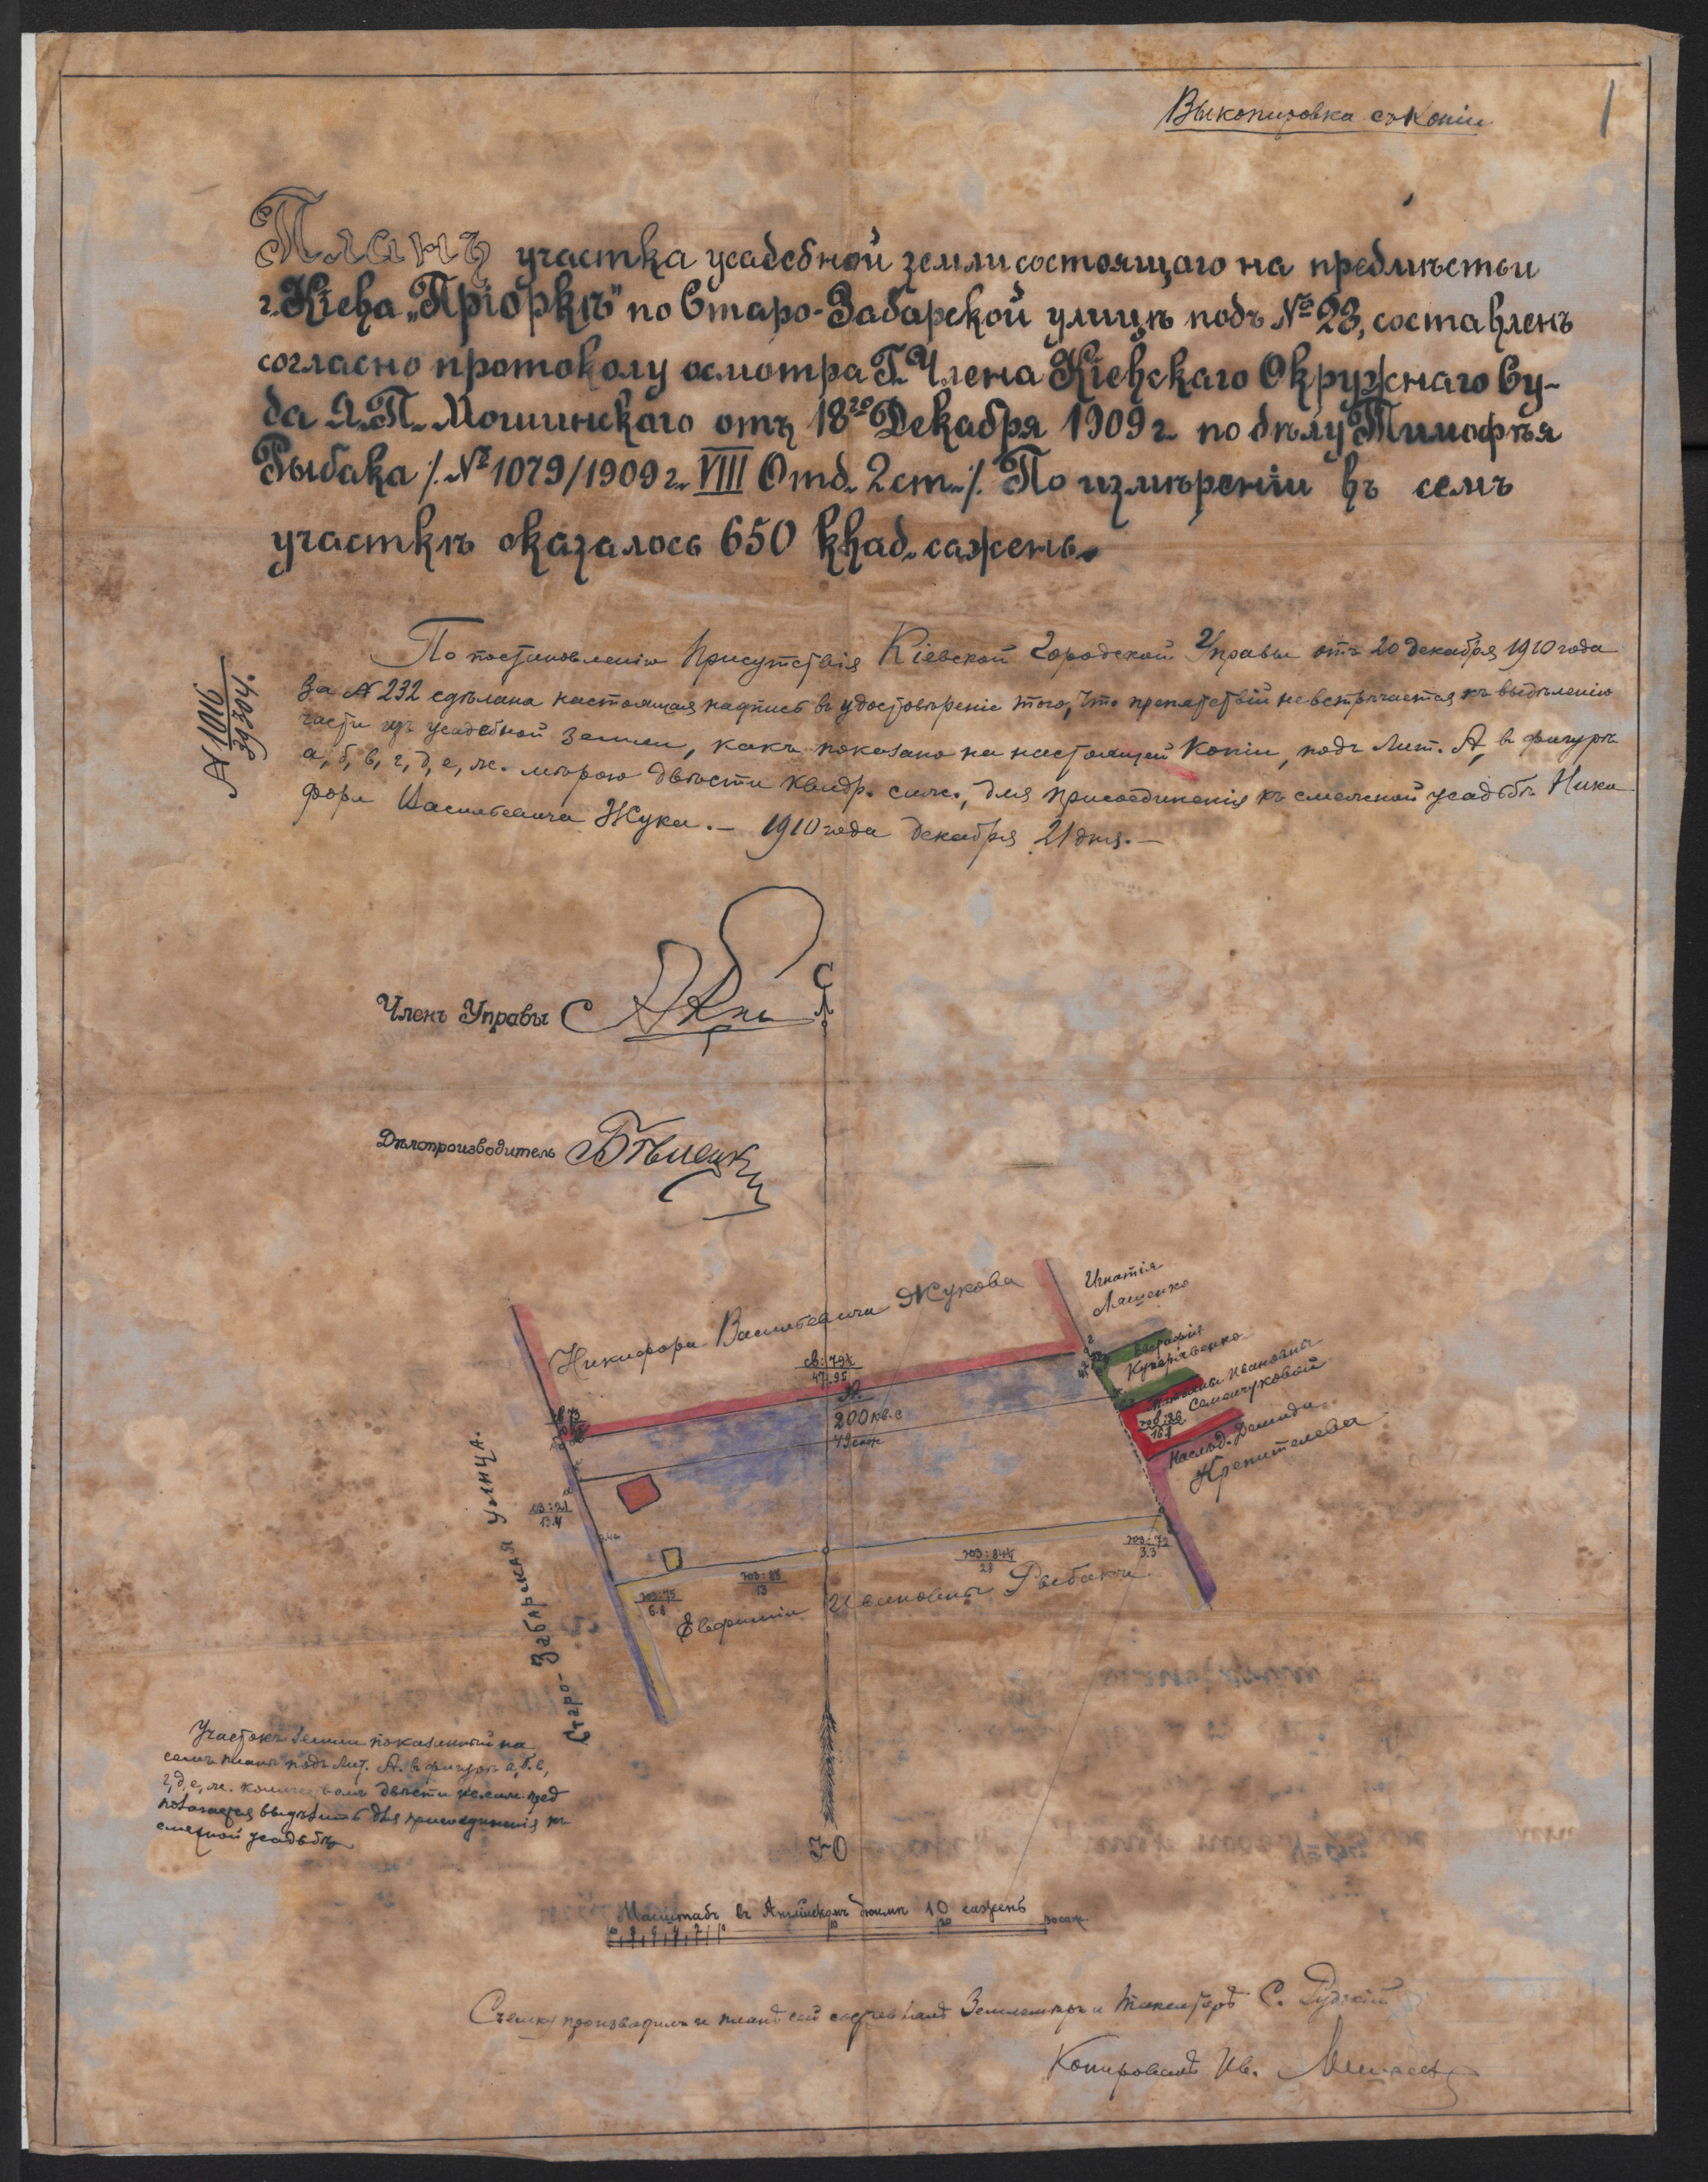 Выкопировка съ Копіи
1
Планъ участка усадебной земли состоящаго на предмѣстьи
г. Кіева „Пріоркѣ" по Старо-Забарской улицѣ подъ № 23, составленъ
согласно протоколу осмотра Г. Члена Кіевскаго Окружнаго Су-
да Я. П. Мошинскаго отъ 18го Декабря 1909 г. по дѣлу Тимофѣя
Рыбака /. № 1079/1909 г. VIII Отд. 2 ст. /. По измѣреніи въ семъ
участкѣ оказалось 650 квад. сажень.
№ 1016
39304.
По постановленію Присутствія Кіевской Городской Управы отъ 20 Декабря 1910 года
за № 232 сдѣлана настоящая надпись въ удостовѣреніе того, что препятствій не встрѣчается къ выдѣленію
части изъ усадебной земли, какъ показано на настоящей Копіи, подъ Лит. А, въ фигурѣ
а, б, в, г, д, е, ж. мѣрою двѣсти квадр. саж., для присоединенія къ смежной усадьбѣ Ники
фора Васильевича Жука. — 1910 года Декабря 21 дня. —
С
Членъ Управы
Дѣлопроизводитель Бѣлецкій
Никифора Васильевича Жукова
Игнатія
Ляшенко
Евграфія
Кухаренко
Татьяны Ивановны
Семенчуковой
Наслѣд. Демида
Крепителева
св: 79½
47.95
А.
200 кв. с
49 саж
св: 21
13.4
юз: 75
6.8
юз: 88
13
юз: 84½
28
юз: 72
3.3
Евфиміи Ивановны Рыбакъ
Старо-Забарская улица.
Участокъ земли показанный на
семъ планѣ подъ Лит. А. въ фигурѣ а, б, в,
г, д, е, ж. количествомъ двѣсти кв. саж. пред
полагается выдѣлить для присоединенія къ
смежной усадьбѣ
Ю
Масштабъ въ Англійскомъ дюймѣ 10 сажень
10 8 6 4 2 0 10 20 30 саж.
Съемку производилъ и планъ сей составлялъ Землемѣръ и Таксаторъ С. Рудзкій
Копировалъ Ив.